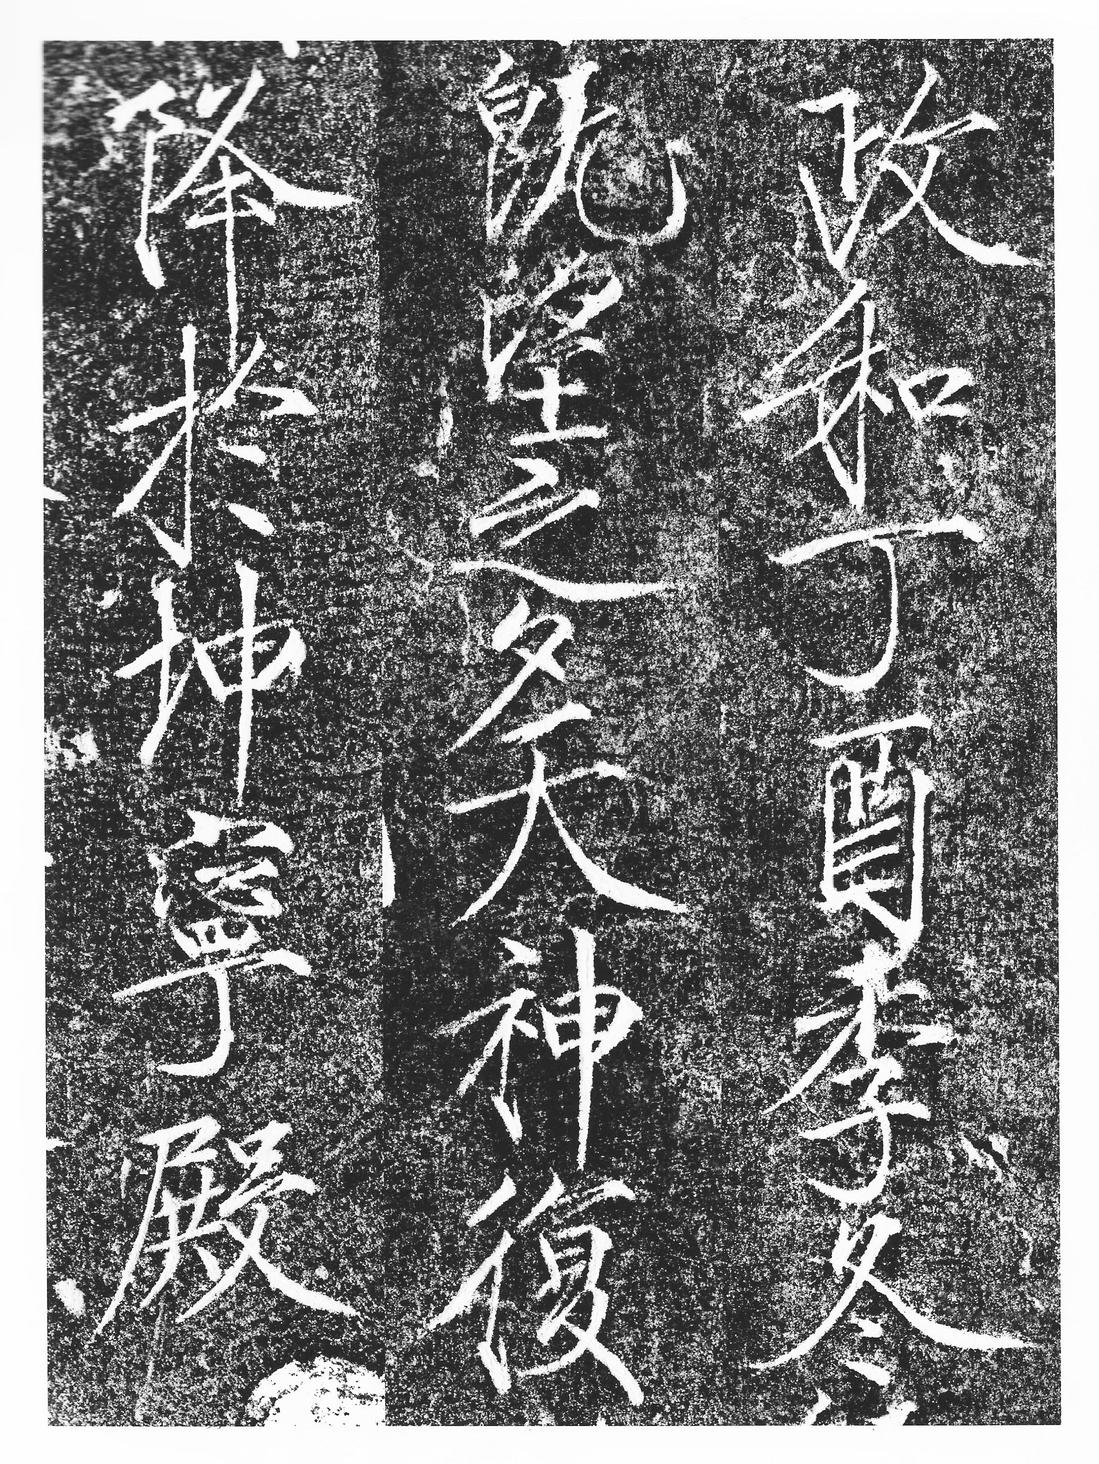 政和丁酉季冬
既望之夕天神復
降於坤寧殿